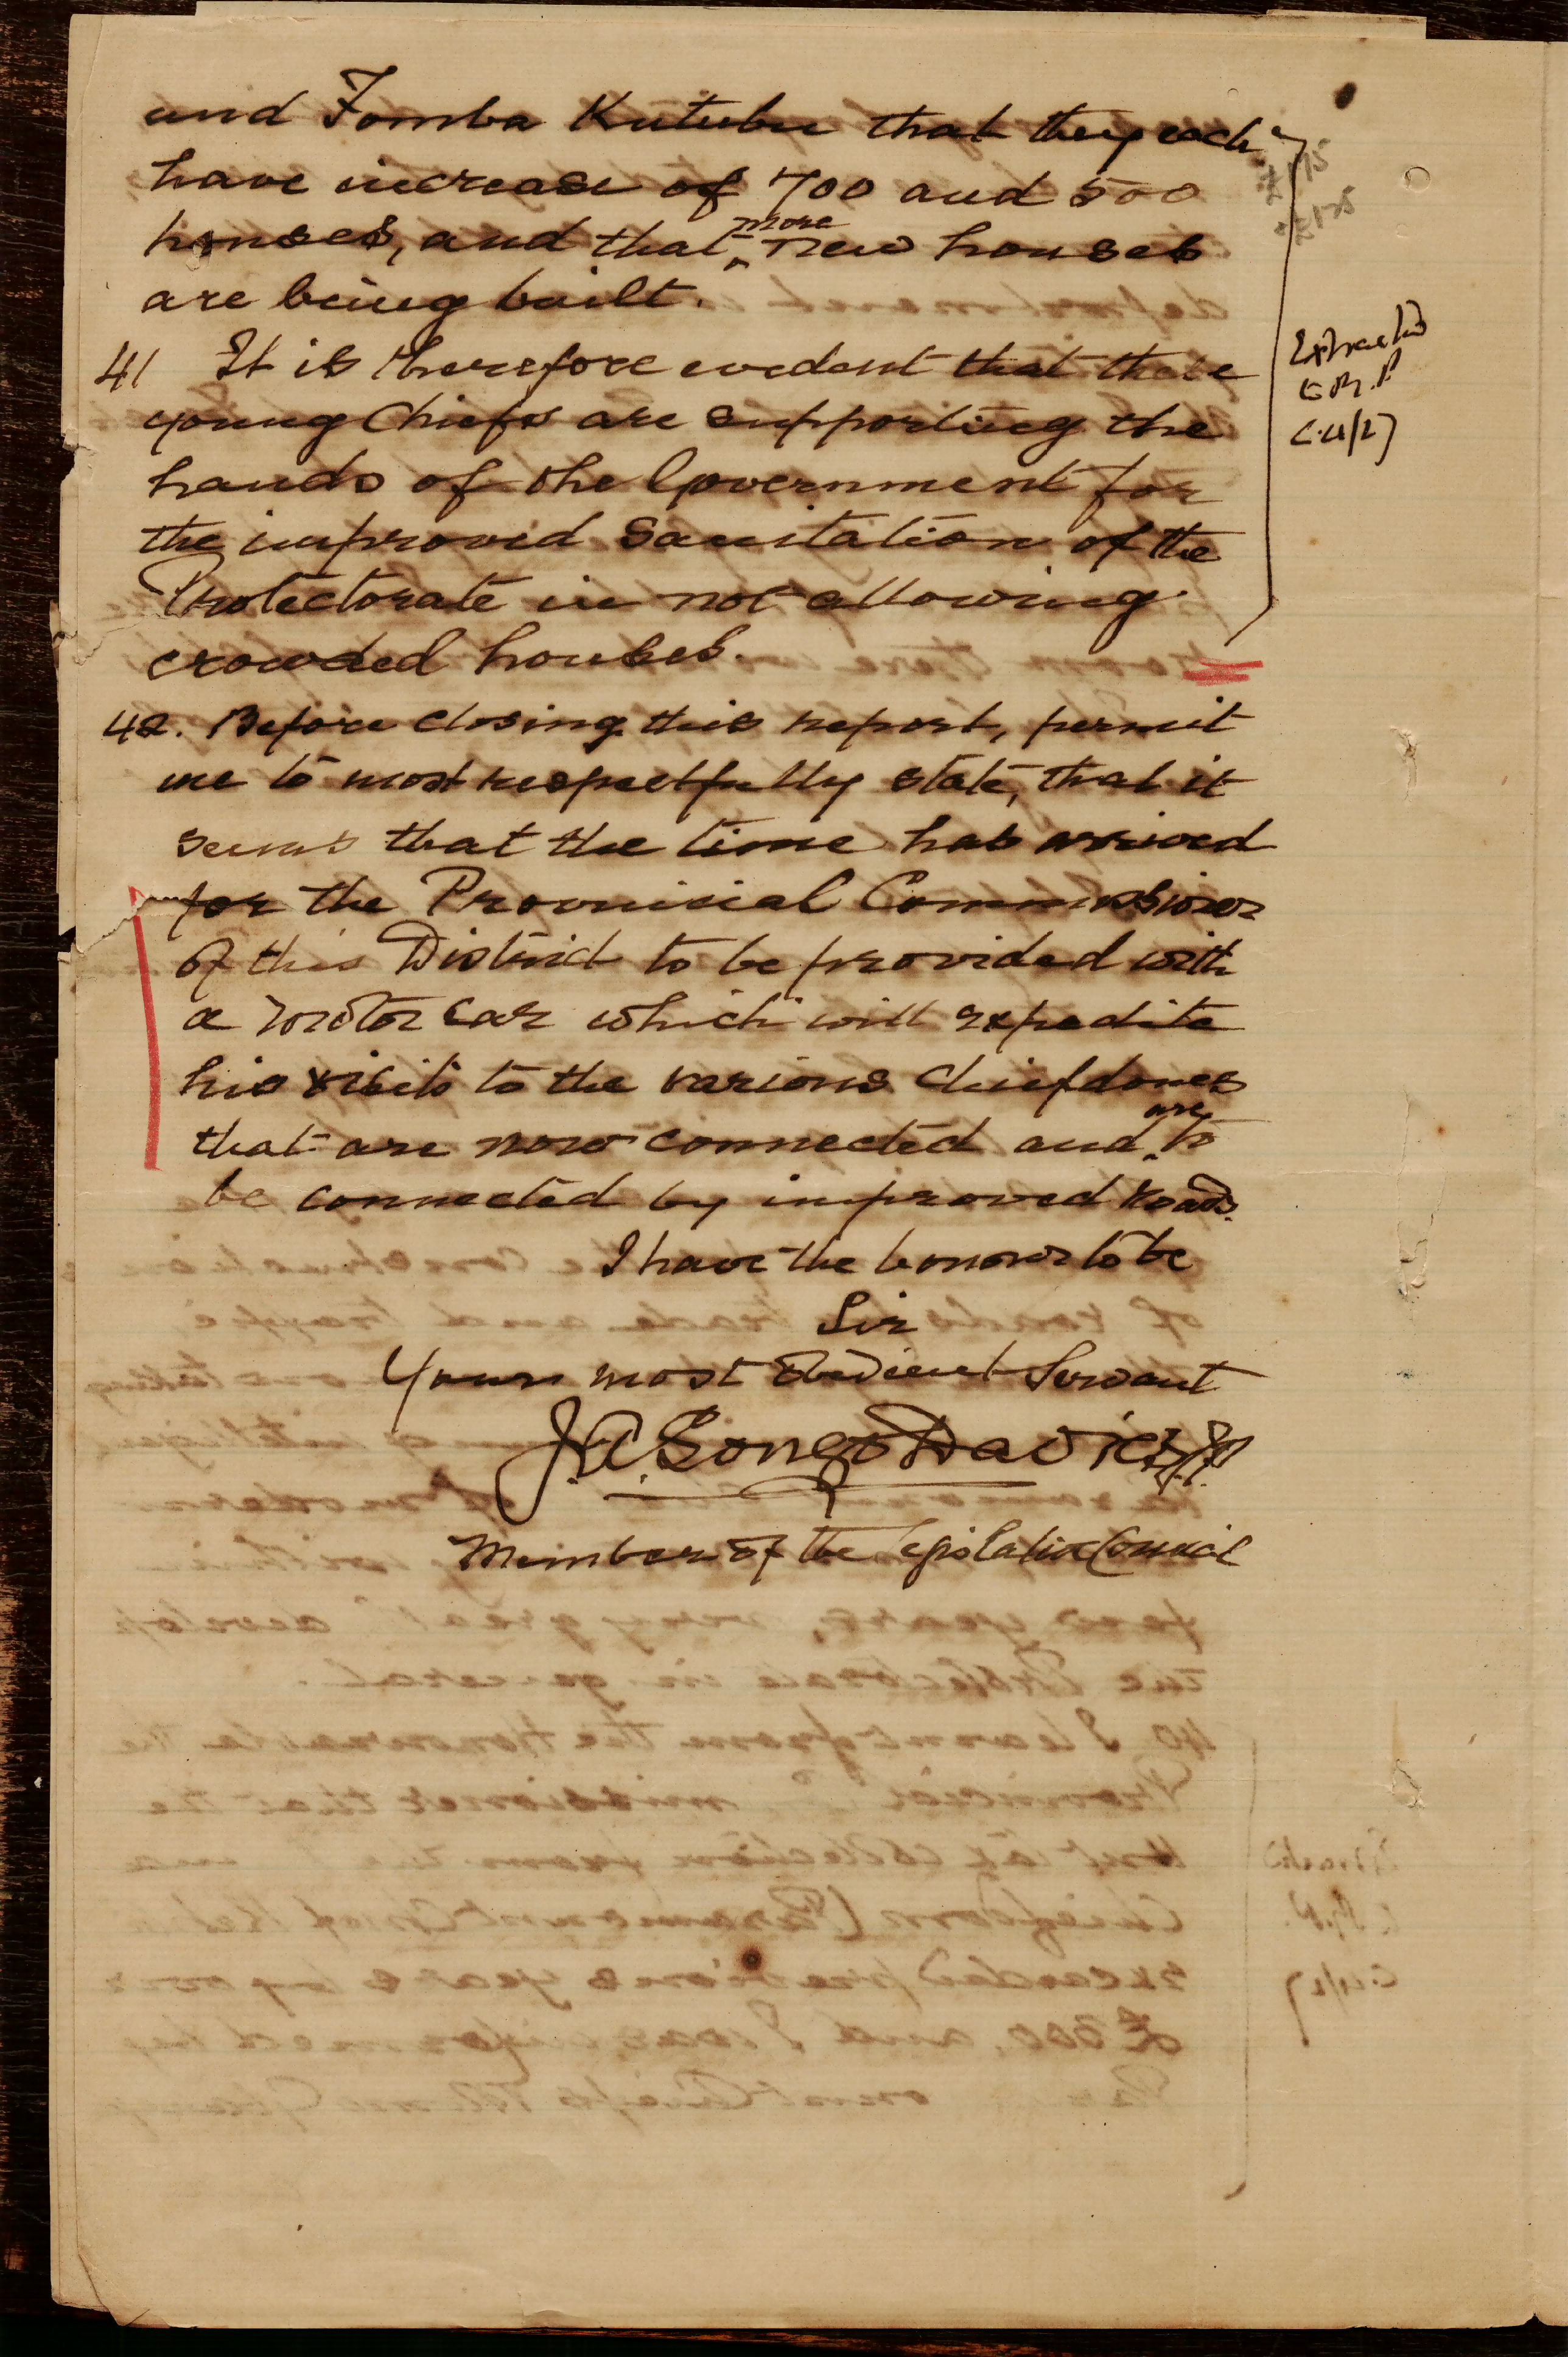 and Fomba Kutubu that they each
have increase of 700 and 500
houses, and that more new houses
are being built.
41 It is therefore evedent that these
young Chiefs are supporting the
hands of the Government for
the improved Sanitation of the
Protectorate in not allowing
crowded houses.
42. Before closing this report, permit
me to most respectfully state, that it
seems that the time has arrived
for the Provincial Commissioner
of this District to be provided with
a motor car which will expedite
his visits to the various chiefdomes
that are now connected and are to
be connected by improved roads.
I have the honour to be
Sir
Yours most Obedient Servant
J.A. Songo Davies J.P.
Member of the Legislative Council
£175
£125
Extracted